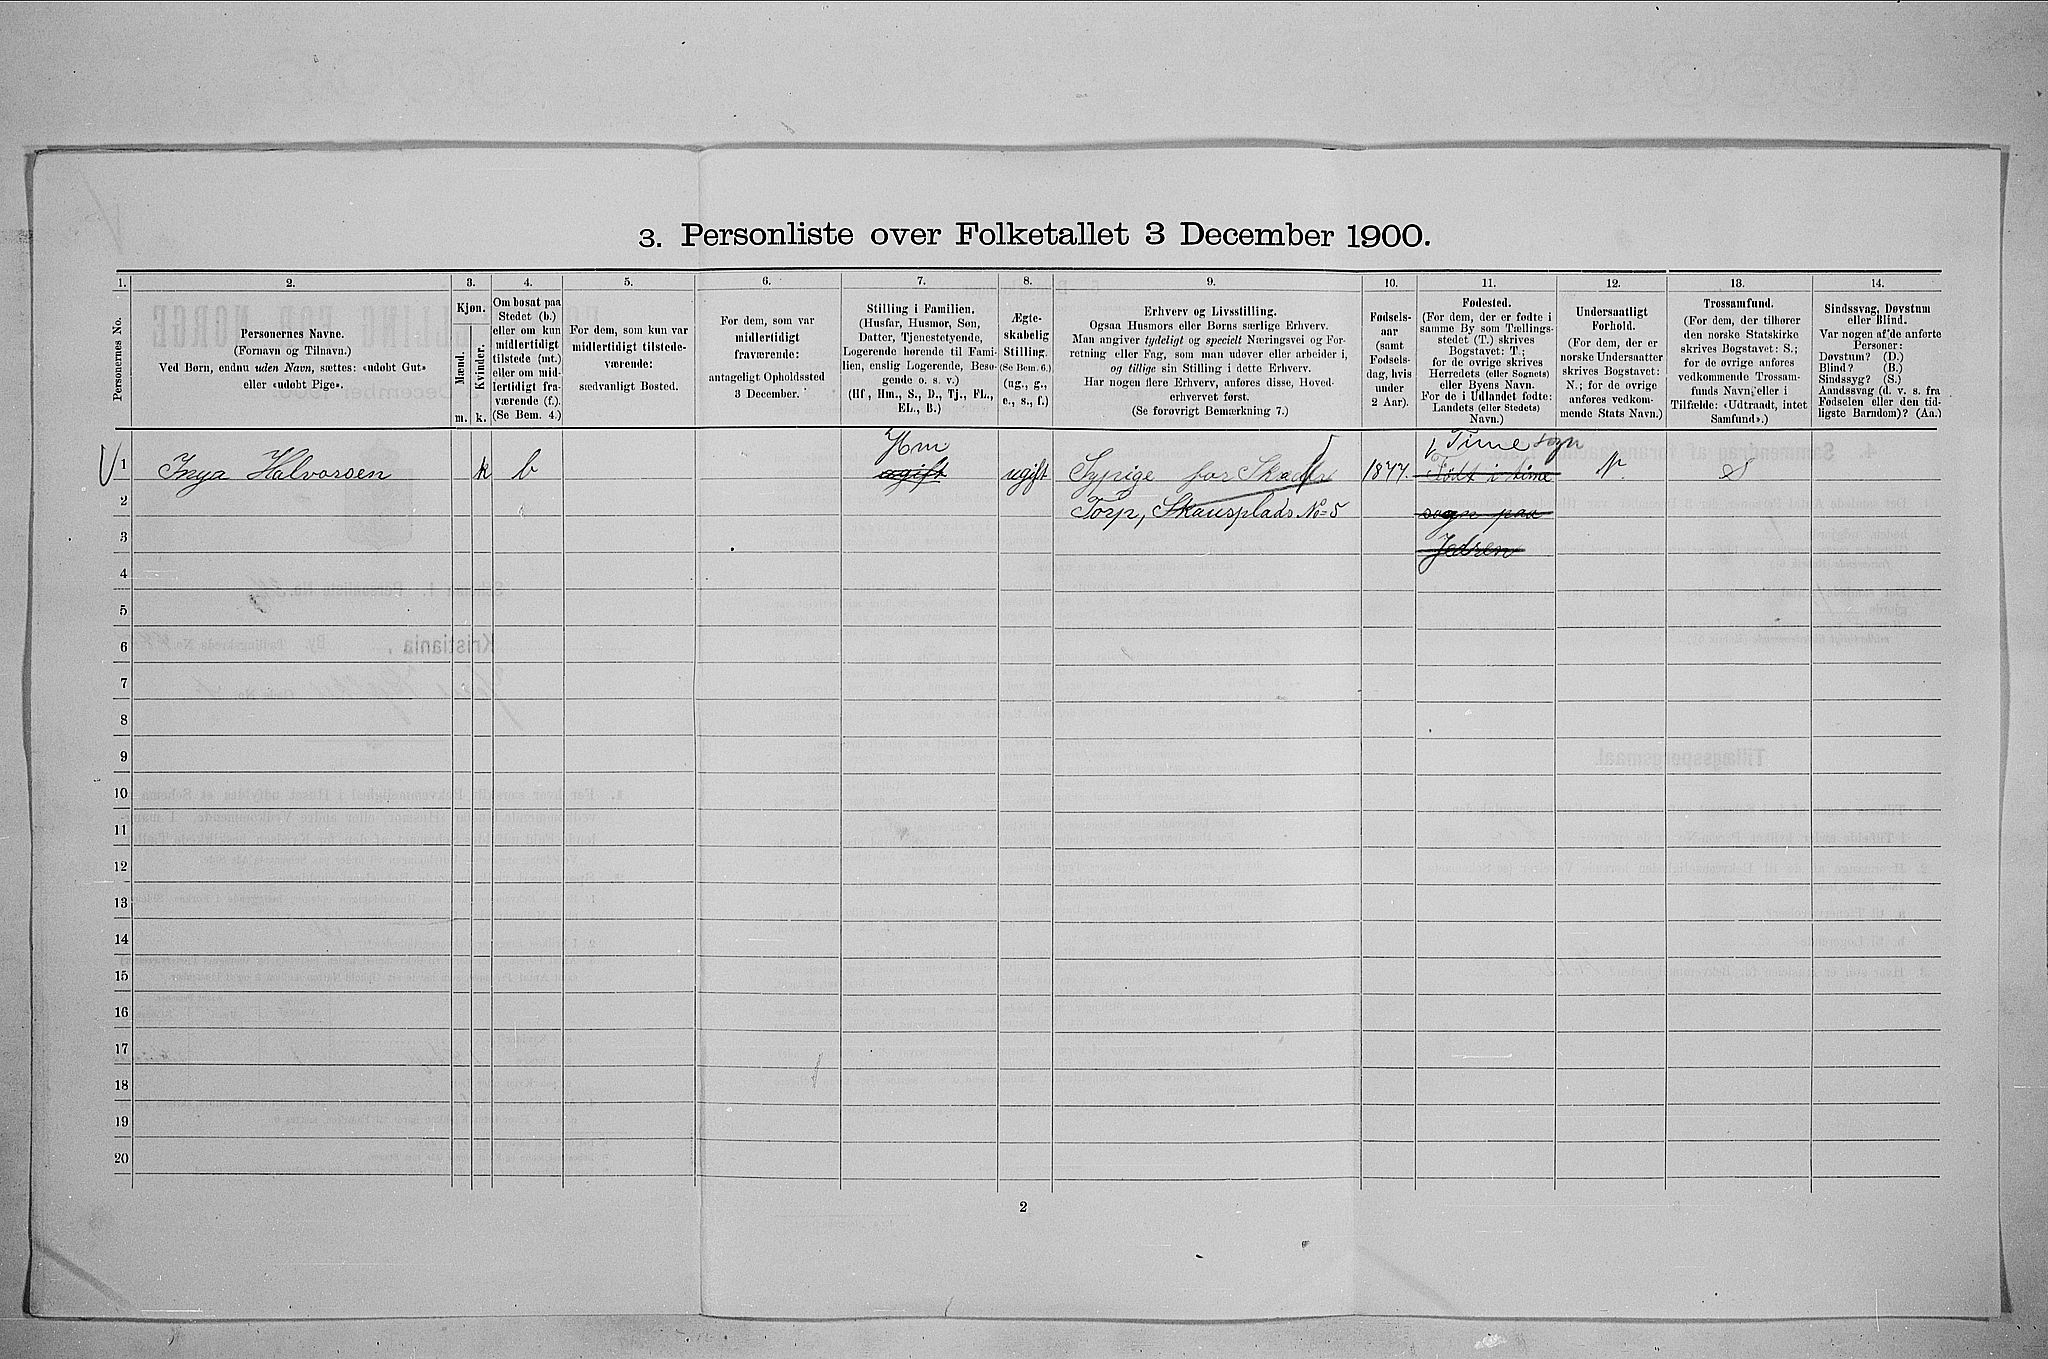 3. Personliste over Folketallet 3 December 1900.
1.
2.
3.
4.
5.
6.
7.
8.
9.
10.
11.
12.
13.
14.
Personernes No.
Personernes Navne.
(Fornavn og Tilnavn.)
Ved Børn, endnu uden Navn, sættes: «udøbt Gut»
eller «udøbt Pige».
Kjøn.
Mænd.
Kvinder.
m.
k.
Om bosat paa
Stedet (b.)
eller om kun
midlertidigt
tilstede (mt.)
eller om mid-
lertidigt fra-
værende (f.).
(Se Bem. 4.)
For dem, som kun var
midlertidigt tilstede-
værende:
sædvanligt Bosted.
For dem, som var
midlertidigt
fraværende:
antageligt Opholdssted
3 December.
Stilling i Familien.
(Husfar, Husmor, Søn,
Datter, Tjenestetyende,
Logerende hørende til Fami-
lien, enslig Logerende, Besø-
gende o. s. v.)
(Hf, Hm., S., D., Tj., FL.,
EL., B.)
Ægte-
skabelig
Stilling.
(Se Bem. 6.)
(ug., g.,
e., s., f.)
Erhverv og Livsstilling.
Ogsaa Husmors eller Børns særlige Erhverv.
Man angiver tydeligt og specielt Næringsvei og For-
retning eller Fag, som man udøver eller arbeider i,
og tillige sin Stilling i dette Erhverv.
Har nogen flere Erhverv, anføres disse, Hoved-
erhvervet først.
(Se forøvrigt Bemærkning 7.)
Fødsels-
aar
(samt
Fødsels-
dag, hvis
under
2 Aar).
Fødested.
(For dem, der er fødte i
samme By som Tællings-
stedet (T.) skrives
Bogstavet: T.;
for de øvrige skrives
Herredets (eller Sognets)
eller Byens Navn.
For de i Udlandet fødte:
Landets (eller Stedets)
Navn.)
Undersaatligt
Forhold.
(For dem, der er
norske Undersaatter
skrives Bogstavet:
N.; for de øvrige
anføres vedkom-
mende Stats Navn.)
Trossamfund.
(For dem, der tilhører
den norske Statskirke
skrives Bogstavet: S.;
for de øvrige anføres
vedkommende Trossam-
funds Navn, eller i
Tilfælde: «Udtraadt, intet
Samfund».)
Sindssvag, Døvstum
eller Blind.
Var nogen af de anførte
Personer:
Døvstum? (D.)
Blind? (B.)
Sindssyg? (S.)
Aandssvag (d. v. s. fra
Fødselen eller den tid-
ligste Barndom)? (Aa.)
Hm
Time sogn
1 Inga Halvorsen k b ugift ugift Sypige for 1877. Født i time N. S
2 Torp, Skausplads No 5 sogn paa
3 Jedren
4
5
6
7
8
9
10
11
12
13
14
15
16
17
18
19
20
2